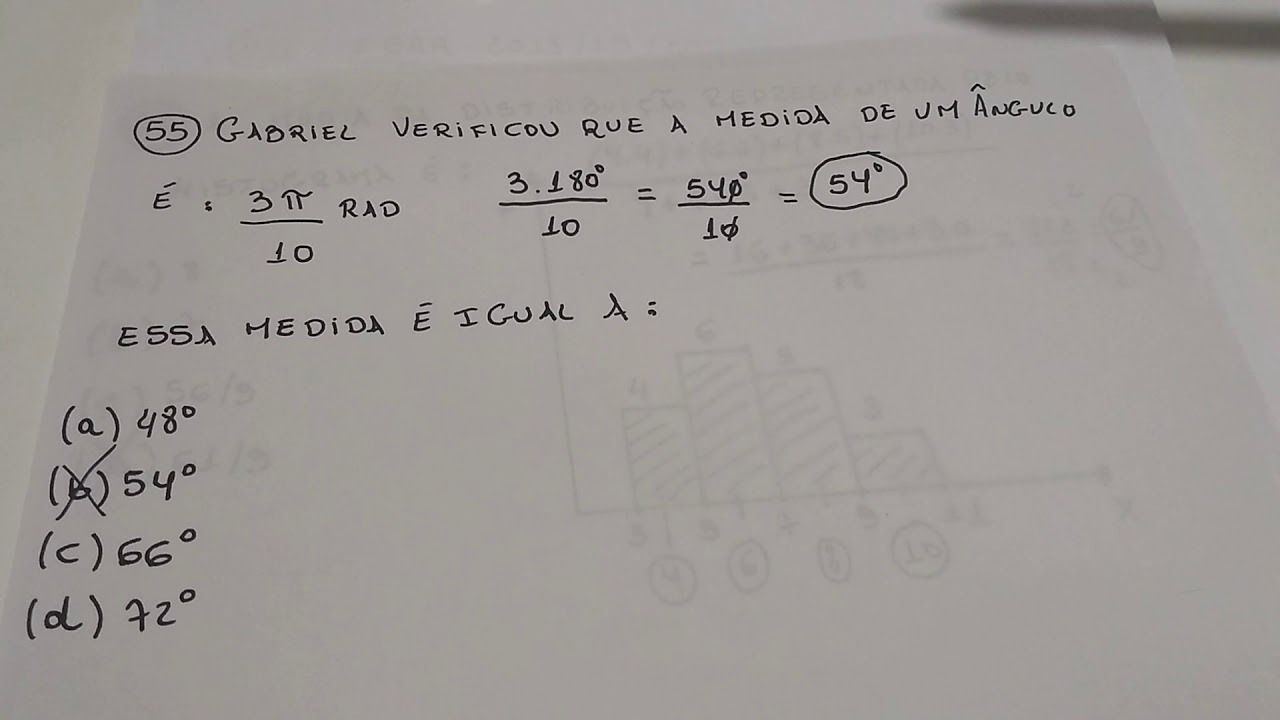 55 GABRIEL VERIFICOU QUE A MEDIDA DE UM ÂNGULO
É : 3π/10 RAD 3.180°/10 = 540°/10 = 54°
ESSA MEDIDA É IGUAL A :
(a) 48°
(b) 54°
(c) 66°
(d) 72°